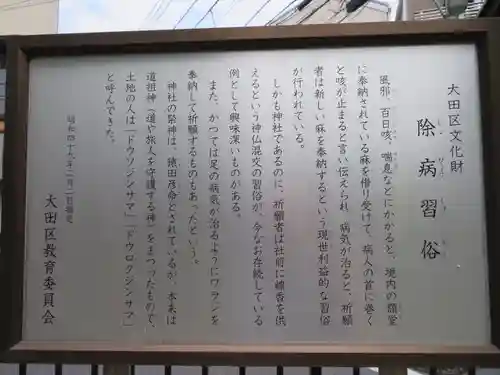 大田区文化財
除病習俗
風邪、百日咳、喘息などにかかると、境内の額堂
に奉納されている麻を借り受けて、病人の首に巻く
と咳が止まると言い伝えられ、病気が治ると、祈願
者は新しい麻を奉納するという現世利益的な習俗
が行われている。
しかも神社であるのに、祈願者は社前に線香を供
えるという神仏混交の習俗が、今なお存続している
例として興味深いものがある。
また、かつては足の病気が治るようにワラジを
奉納して祈願するものもあったという。
神社の祭神は、猿田彦命とされているが、本来は
道祖神(道や旅人を守護する神)をまつったもので、
土地の人は「ドウソジンサマ」「ドウロクジンサマ」
と呼んできた。
大田区教育委員会